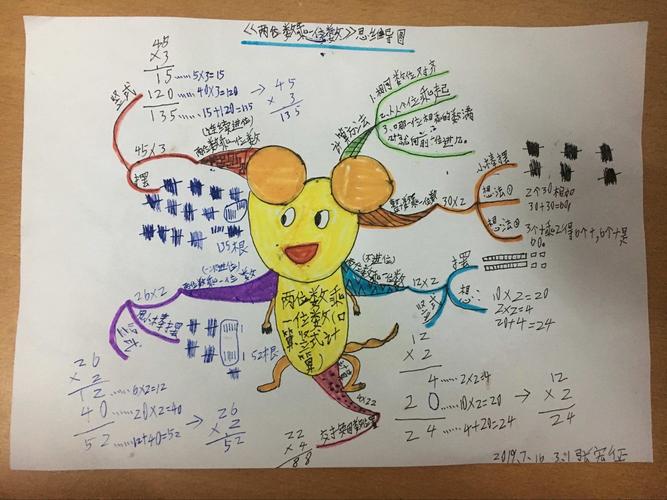 《两位数乘一位数》思维导图
竖式
45
×3
15 ……5×3=15
120 ……40×3=120
135 ……15+120=135
→ 45
× 3
135
(连续进位)
两位数乘一位数
45×3
摆
135根
计算方法
1.相同数位对齐
2.从个位乘起
3.口那一位相乘的数满
几十就向前一位进几。
整十数乘一位数
30×2
小棒摆
想法①
2个30相加
30+30=60。
想法②
3个十乘2得6个十,6个十是
60。
(一次进位)
两位数乘一位数
26×2
用小棒摆
竖式
52根
26
× 2
12 ……6×2=12
40 ……20×2=40
52 ……12+40=52
→ 26
× 2
52
(不进位)
两位数乘一位数
12×2
摆
竖式
想:
10×2=20
2×2=4
20+4=24
12
× 2
4 ……2×2=4
20 ……10×2=20
24 ……4+20=24
→ 12
× 2
24
两位数乘
一位数口
算竖式计
算
22
× 4
88
2019.7.16